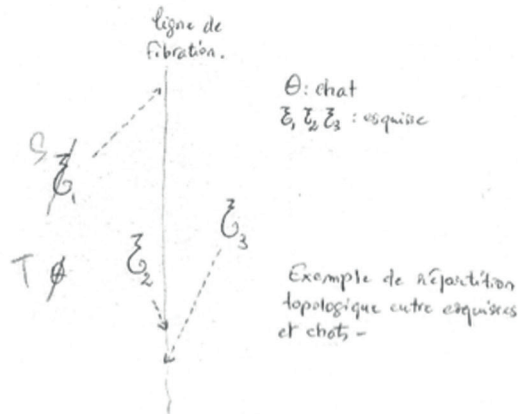 ligne de
fibration.
θ: chat
ξ₁ ξ₂ ξ₃ : esquisse
S ξ₁
ξ₃
T θ
ξ₂
Exemple de répartition
topologique entre esquisses
et chats –